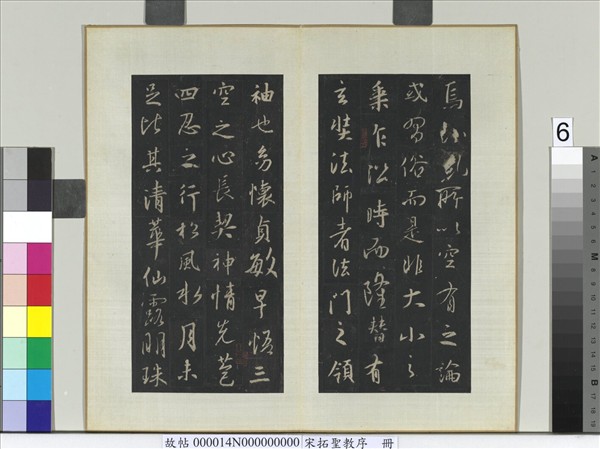 焉紛糺所以空有之論
或習俗而是非大小之
乘乍沿時而隆替有
玄奘法師者法門之領
袖也幼懷貞敏早悟三
空之心長契神情先苞
四忍之行松風水月未
足比其清華仙露明珠
6
故帖 000014N000000000 宋拓聖教序 冊